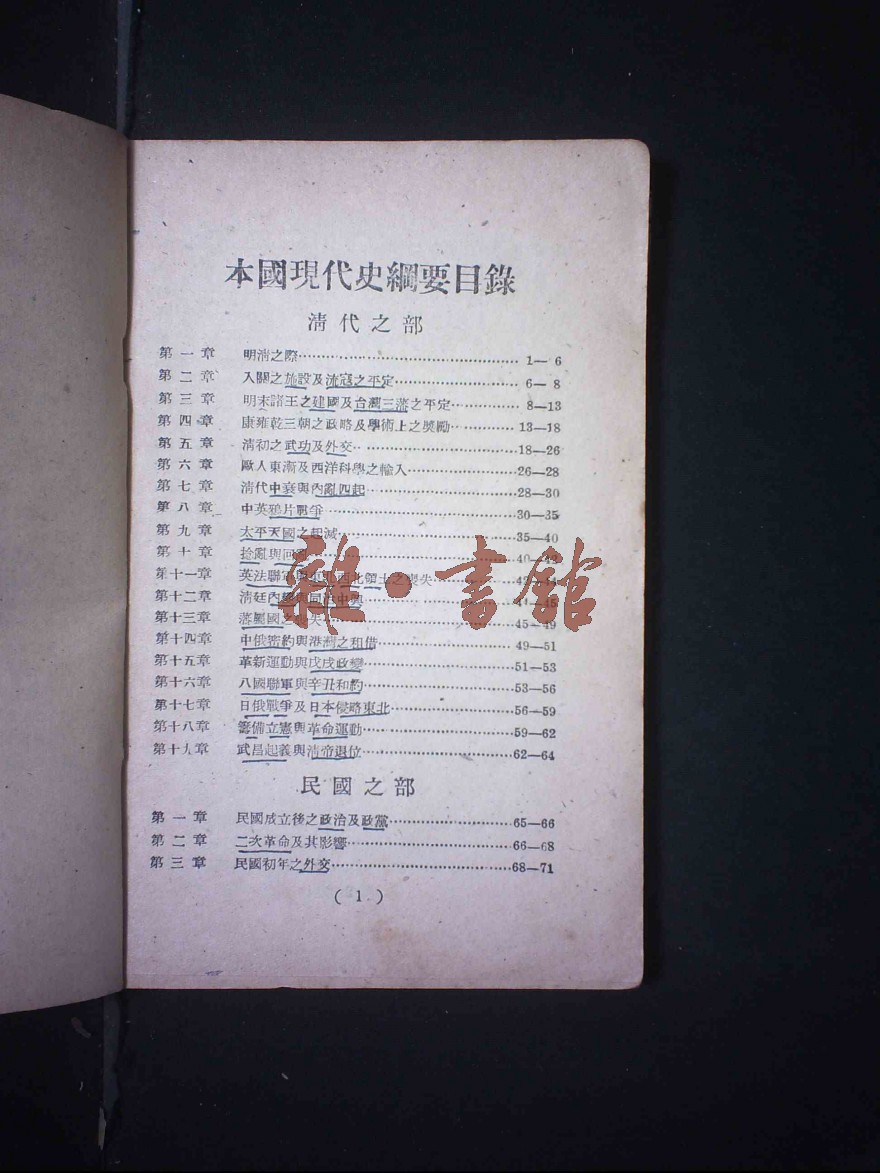 本國現代史綱要目錄
清代之部
第一章 明清之際 1—6
第二章 入關之施設及流寇之平定 6—8
第三章 明末諸王之建國及台灣三藩之平定 8—13
第四章 康雍乾三朝之政略及學術上之獎勵 13—18
第五章 清初之武功及外交 18—26
第六章 歐人東漸及西洋科學之輸入 26—28
第七章 清代中衰與內亂四起 28—30
第八章 中英鴉片戰爭 30—35
第九章 太平天國之起滅 35—40
第十章 捻亂與回 40—42
第十一章 英法聯軍與 西北領土之喪失
第十二章 清廷內 與同治中興
第十三章 藩屬國之 失 45—49
第十四章 中俄密約與港灣之租借 49—51
第十五章 革新運動與戊戌政變 51—53
第十六章 八國聯軍與辛丑和約 53—56
第十七章 日俄戰爭及日本侵略東北 56—59
第十八章 籌備立憲與革命運動 59—62
第十九章 武昌起義與清帝退位 62—64
民國之部
第一章 民國成立後之政治及政黨 65—66
第二章 二次革命及其影響 66—68
第三章 民國初年之外交 68—71
(1)
雜·書館